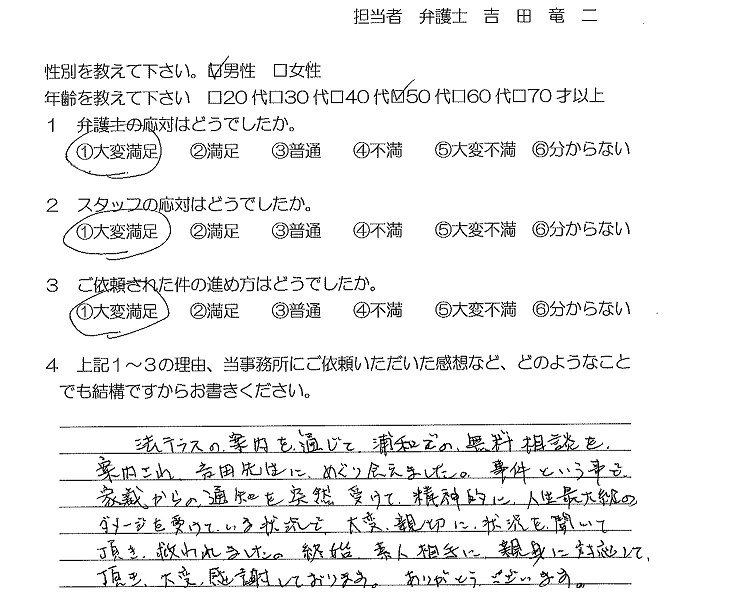 担当者　弁護士　吉　田　竜　二
性別を教えて下さい。☑男性　□女性
年齢を教えて下さい　□20代□30代□40代☑50代□60代□70才以上
1　弁護士の応対はどうでしたか。
①大変満足　②満足　③普通　④不満　⑤大変不満　⑥分からない
2　スタッフの応対はどうでしたか。
①大変満足　②満足　③普通　④不満　⑤大変不満　⑥分からない
3　ご依頼された件の進め方はどうでしたか。
①大変満足　②満足　③普通　④不満　⑤大変不満　⑥分からない
4　上記1～3の理由、当事務所にご依頼いただいた感想など、どのようなこと
でも結構ですからお書きください。
法テラスの案内を通じて、浦和での無料相談を、
案内され、吉田先生に、めぐり会えました。事件という事で
家裁からの通知を突然受けて、精神的に、人生最大級の
ダメージを受けている状況で、大変、親切に、状況を聞いて
頂き、救われました。終始、素人相手に親身に対応して、
頂き、大変、感謝しております。ありがとうございます。